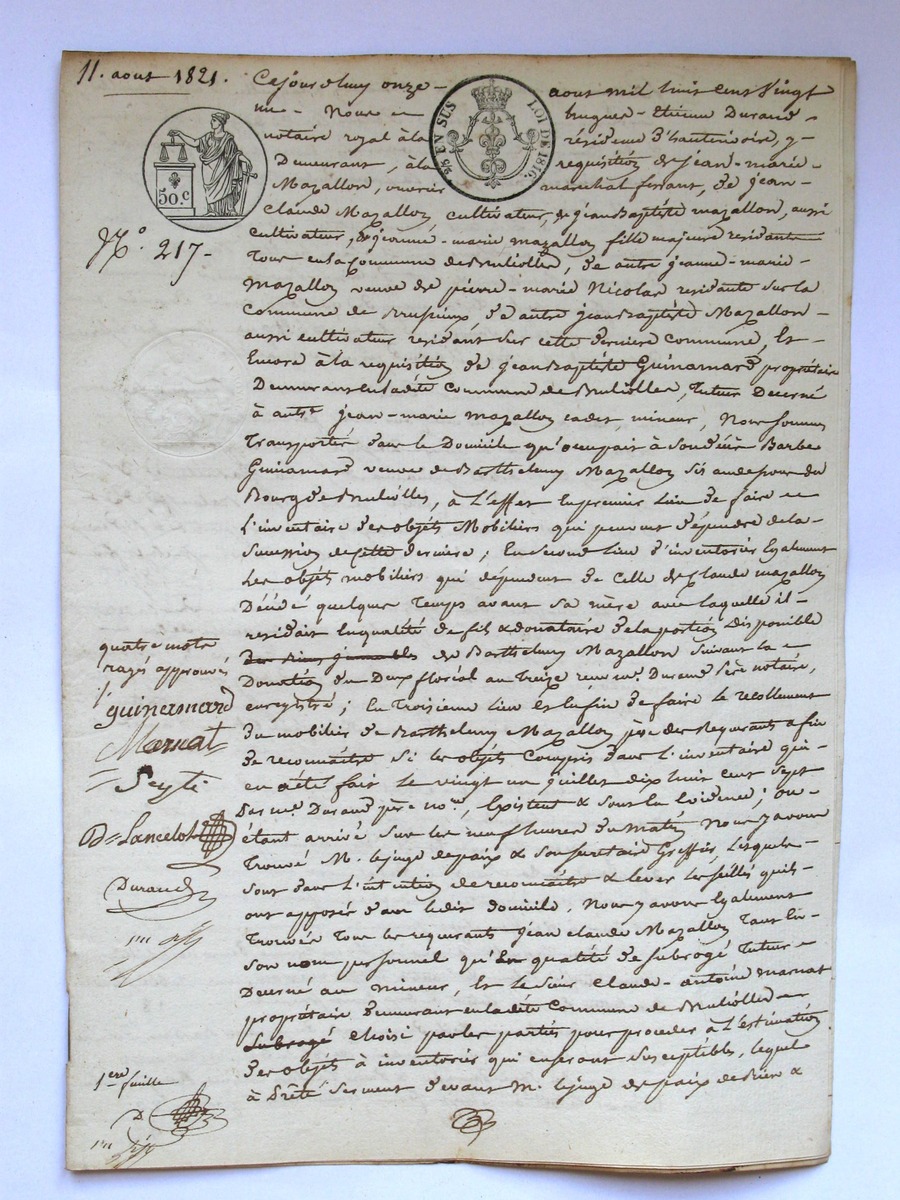 11. aout 1821.
Cejourd'huy onze aout mil huit cent vingt
un Nous Etienne Durand
notaire royal à la résidence d'hauterivoire, y
Demeurant, à la requisition de jean-marie
Mazallon, ouvrier marechal ferrant, de jean-
claude Mazallon cultivateur, de jean Baptiste mazallon, aussi
cultivateur, de jeanne-marie mazallon fille majeure residante
Tous en la Commune de Brullioles, de autre jeanne-marie
Mazallon veuve de pierre-marie Nicolas residante sur la
Commune de de autre jean Baptiste Mazallon
aussi cultivateur residant sur cette derniere Commune, Et
Encore à la requisition de jean Baptiste Guinamard propriétaire
Demeurant en ladite Commune de Brullioles, Tuteur Decerné
à autre jean-marie mazallon cadet, mineur, Nous sommes
Transporté dans le Domicile qu'occupait à son décès Barbe
Guinamard veuve de Barthelemy Mazallon sis au dessous du
Bourg de Brullioles, à L'effet En premier lieu de faire
L'inventaire des objets Mobiliers qui peuvent dépendre de la
Succession de cette derniere; En second lieu d'inventorier Egalement
Les objets mobiliers qui dépendent de celle de Claude mazallon
Décédé quelques Temps avant sa mère avec laquelle il
residait En qualité de fils & donataire de la portion Disponible
de Barthelemy Mazallon suivant la
Donation du Deux floréal an Treize reçue me. Durand père notaire,
enregistré; En Troisieme lieu Et afin de faire le recollement
du mobilier de Barthelemy Mazallon père des Requerants afin
de reconnaitre si les objets Compris dans l'inventaire qui
en a été fait le vingt un juillet dix huit cent sept
Par me. Durand père nore, Existent & sous la Evidence; ou
étant arrivé sur les neuf heures du matin Nous y avons
Trouvé M. le juge de paix & son secretaire Greffier Lesquels
sont dans l'intention de reconnaitre & lever les scellés qu'ils
ont apposés dans ledit domicile. Nous y avons Egalement
Trouvés Tous les requerants jean claude Mazallon Tant En
son nom personnel qu'En qualité de subrogé Tuteur
Decerné au mineur, Et le sieur Claude-antoine marnat
propriétaire demeurant en ladite Commune de Brullioles
Subrogé choisi par les parties pour proceder à L'estimation
des objets à inventorier qui en seront susceptibles, lequel
à Prêté serment devant M. le juge de paix de &
LOI DE 1816.
EN SUS
50.c
No. 217-
quatre mots
rayés approuvés
guinamard
Marnat
Seyti
Lancelot
Durand
1ere feuille